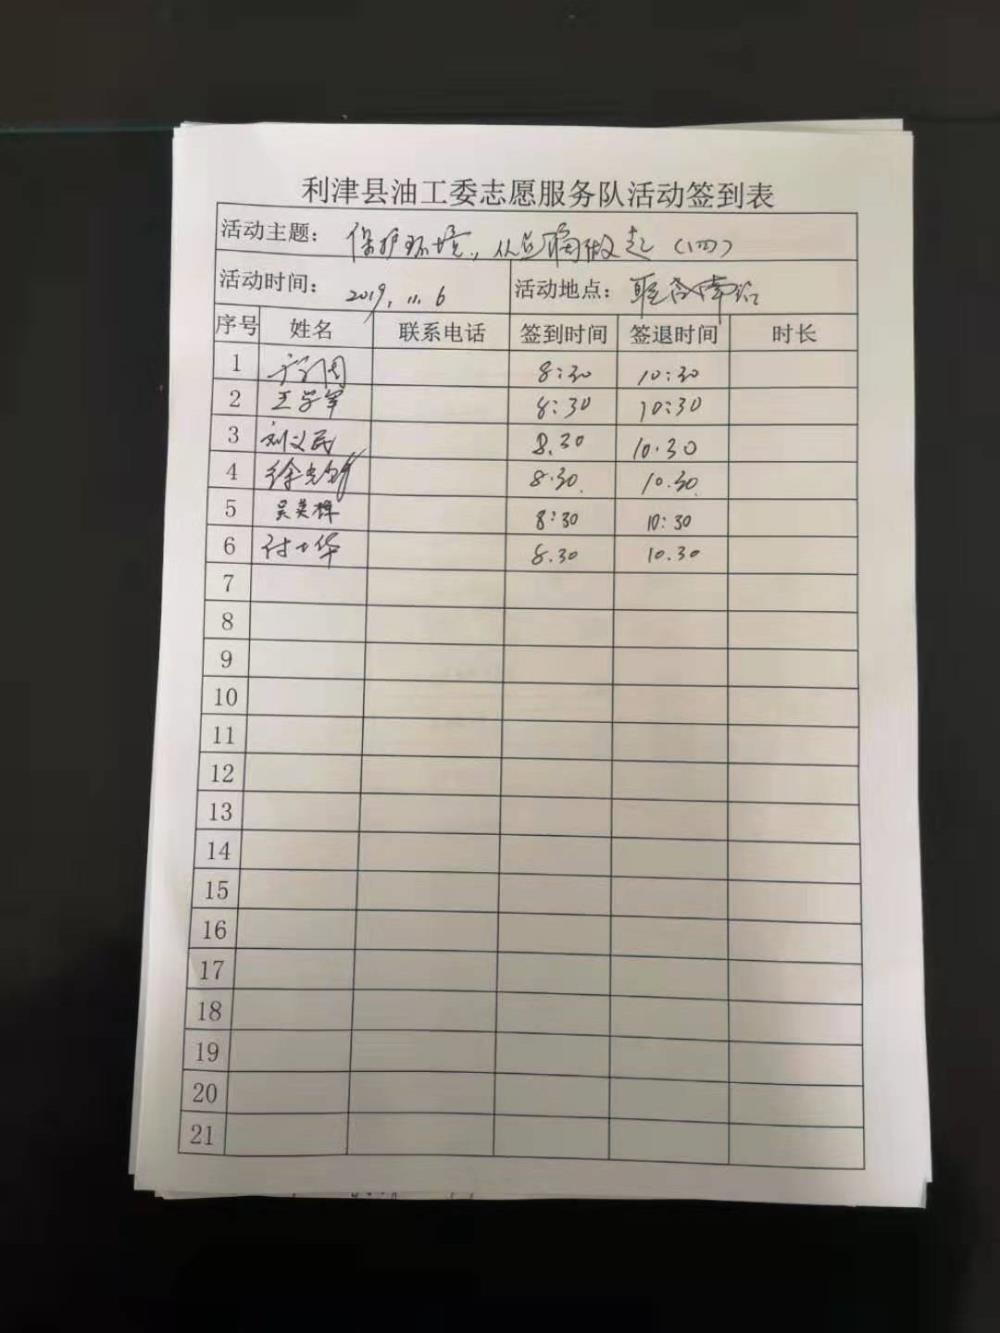 利津县油工委志愿服务队活动签到表
活动主题: 保护环境,从做起(四)
活动时间: 2019.11.6 活动地点:
序号 姓名 联系电话 签到时间 签退时间 时长
1 8:30 10:30
2 王学军 8:30 10:30
3 刘义民 8.30 10.30
4 徐 8.30 10.30
5 吴英梅 8:30 10:30
6 付华 8.30 10.30
7
8
9
10
11
12
13
14
15
16
17
18
19
20
21